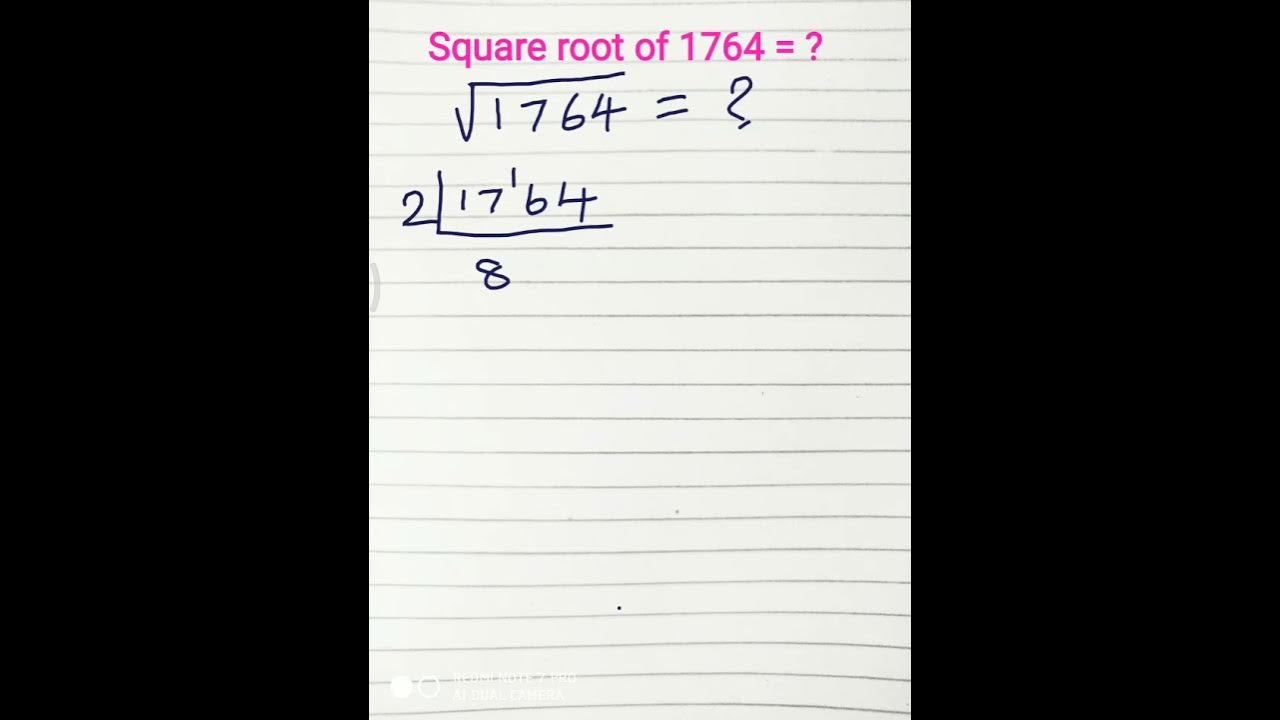 Square root of 1764 = ?
√1764 = ?
2 17'64
8
REDMI NOTE 7 PRO
AI DUAL CAMERA